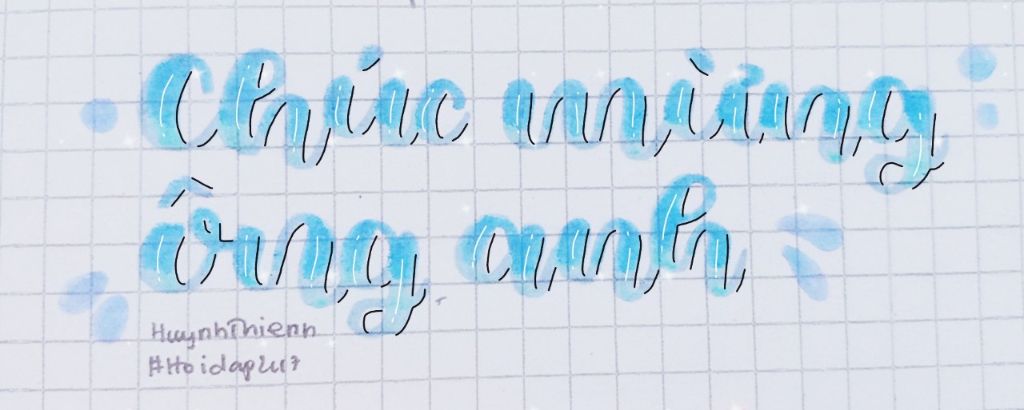 Chúc mừng
ông anh
HuynhThienn
#Hoidap247